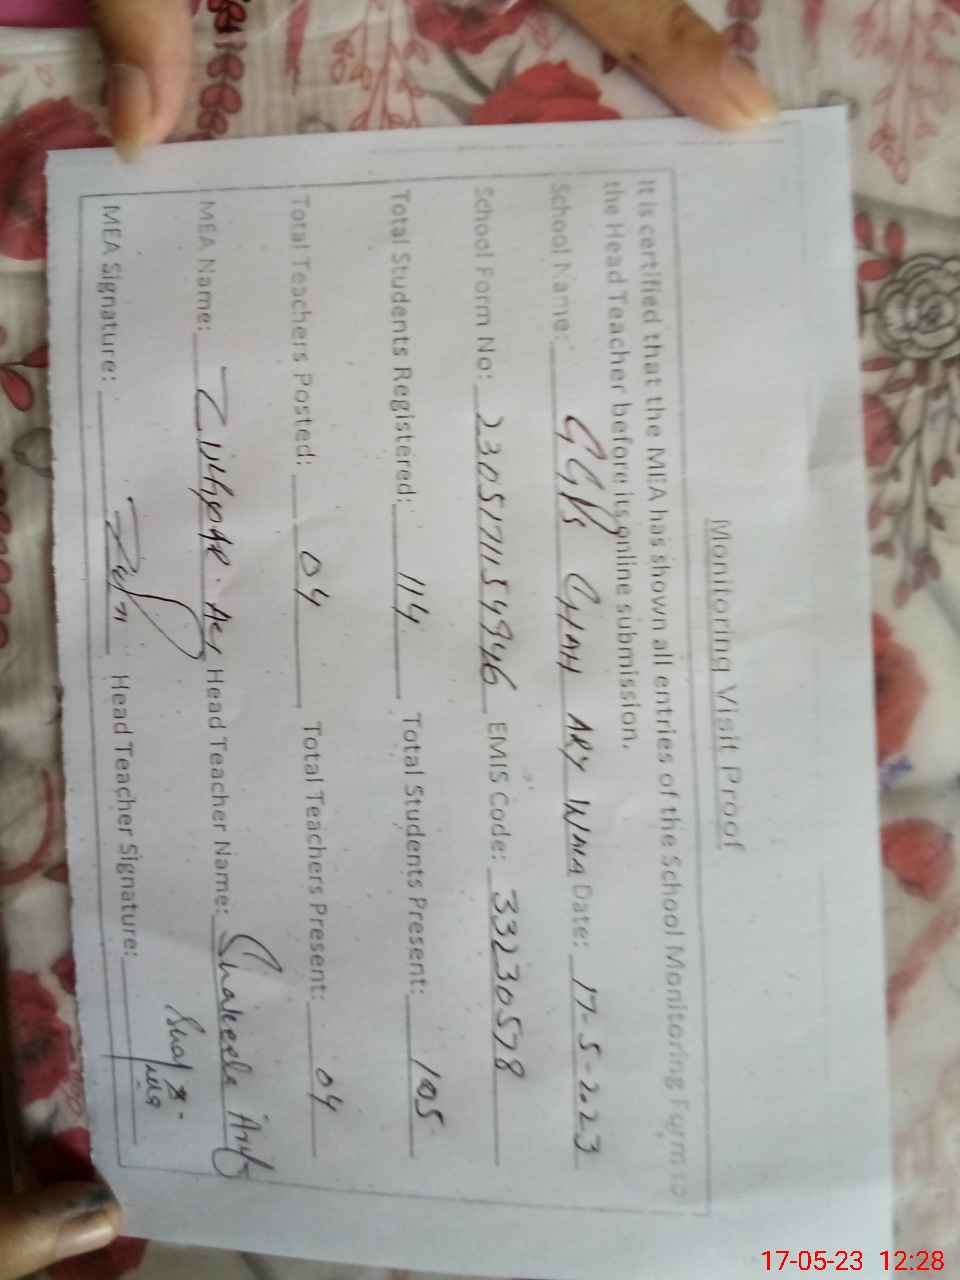 Monitoring Visit Proof
It is certified that the MEA has shown all entries of the School Monitoring Form to
the Head Teacher before its online submission.
School Name: GGPS CHAH ARY WALA Date: 17-5-2023
School Form No: 2305171154946 EMIS Code: 33230578
Total Students Registered: 114 Total Students Present: 105
Total Teachers Posted: 04 Total Teachers Present: 04
MEA Name: Head Teacher Name: Shakeela
MEA Signature: Head Teacher Signature:
17-05-23 12:28